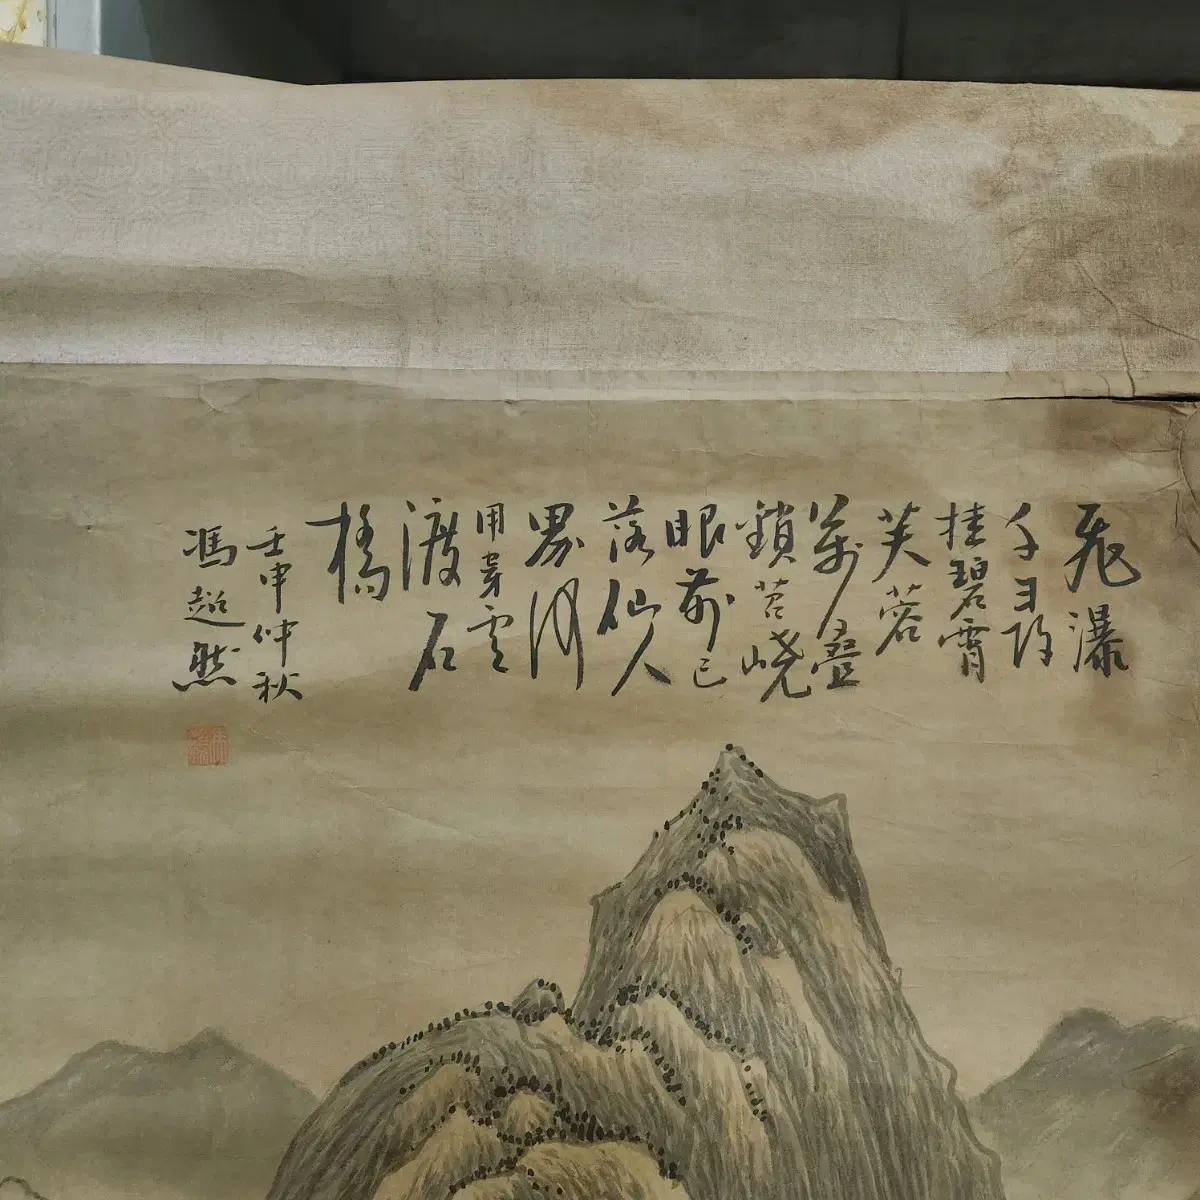 飛瀑
千尋
挂碧霄
芙蓉
萬疊
鎖苕嶢
眼前已
落仙人
界何
用穿雲
渡石
橋
壬申仲秋
馮超然